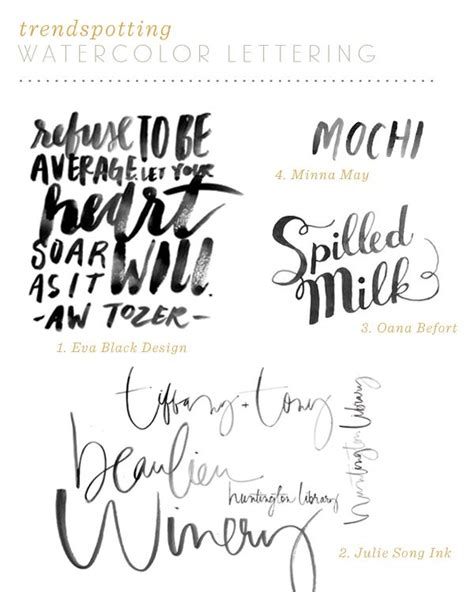 trendspotting
WATERCOLOR LETTERING
refuse TO BE
AVERAGE. LET YOUR
heart
SOAR
AS IT WILL.
-AW TOZER-
1. Eva Black Design
MOCHI
4. Minna May
Spilled
Milk
3. Oana Befort
tiffany + tony
beaulieu
huntington library
Winery
huntington library
2. Julie Song Ink